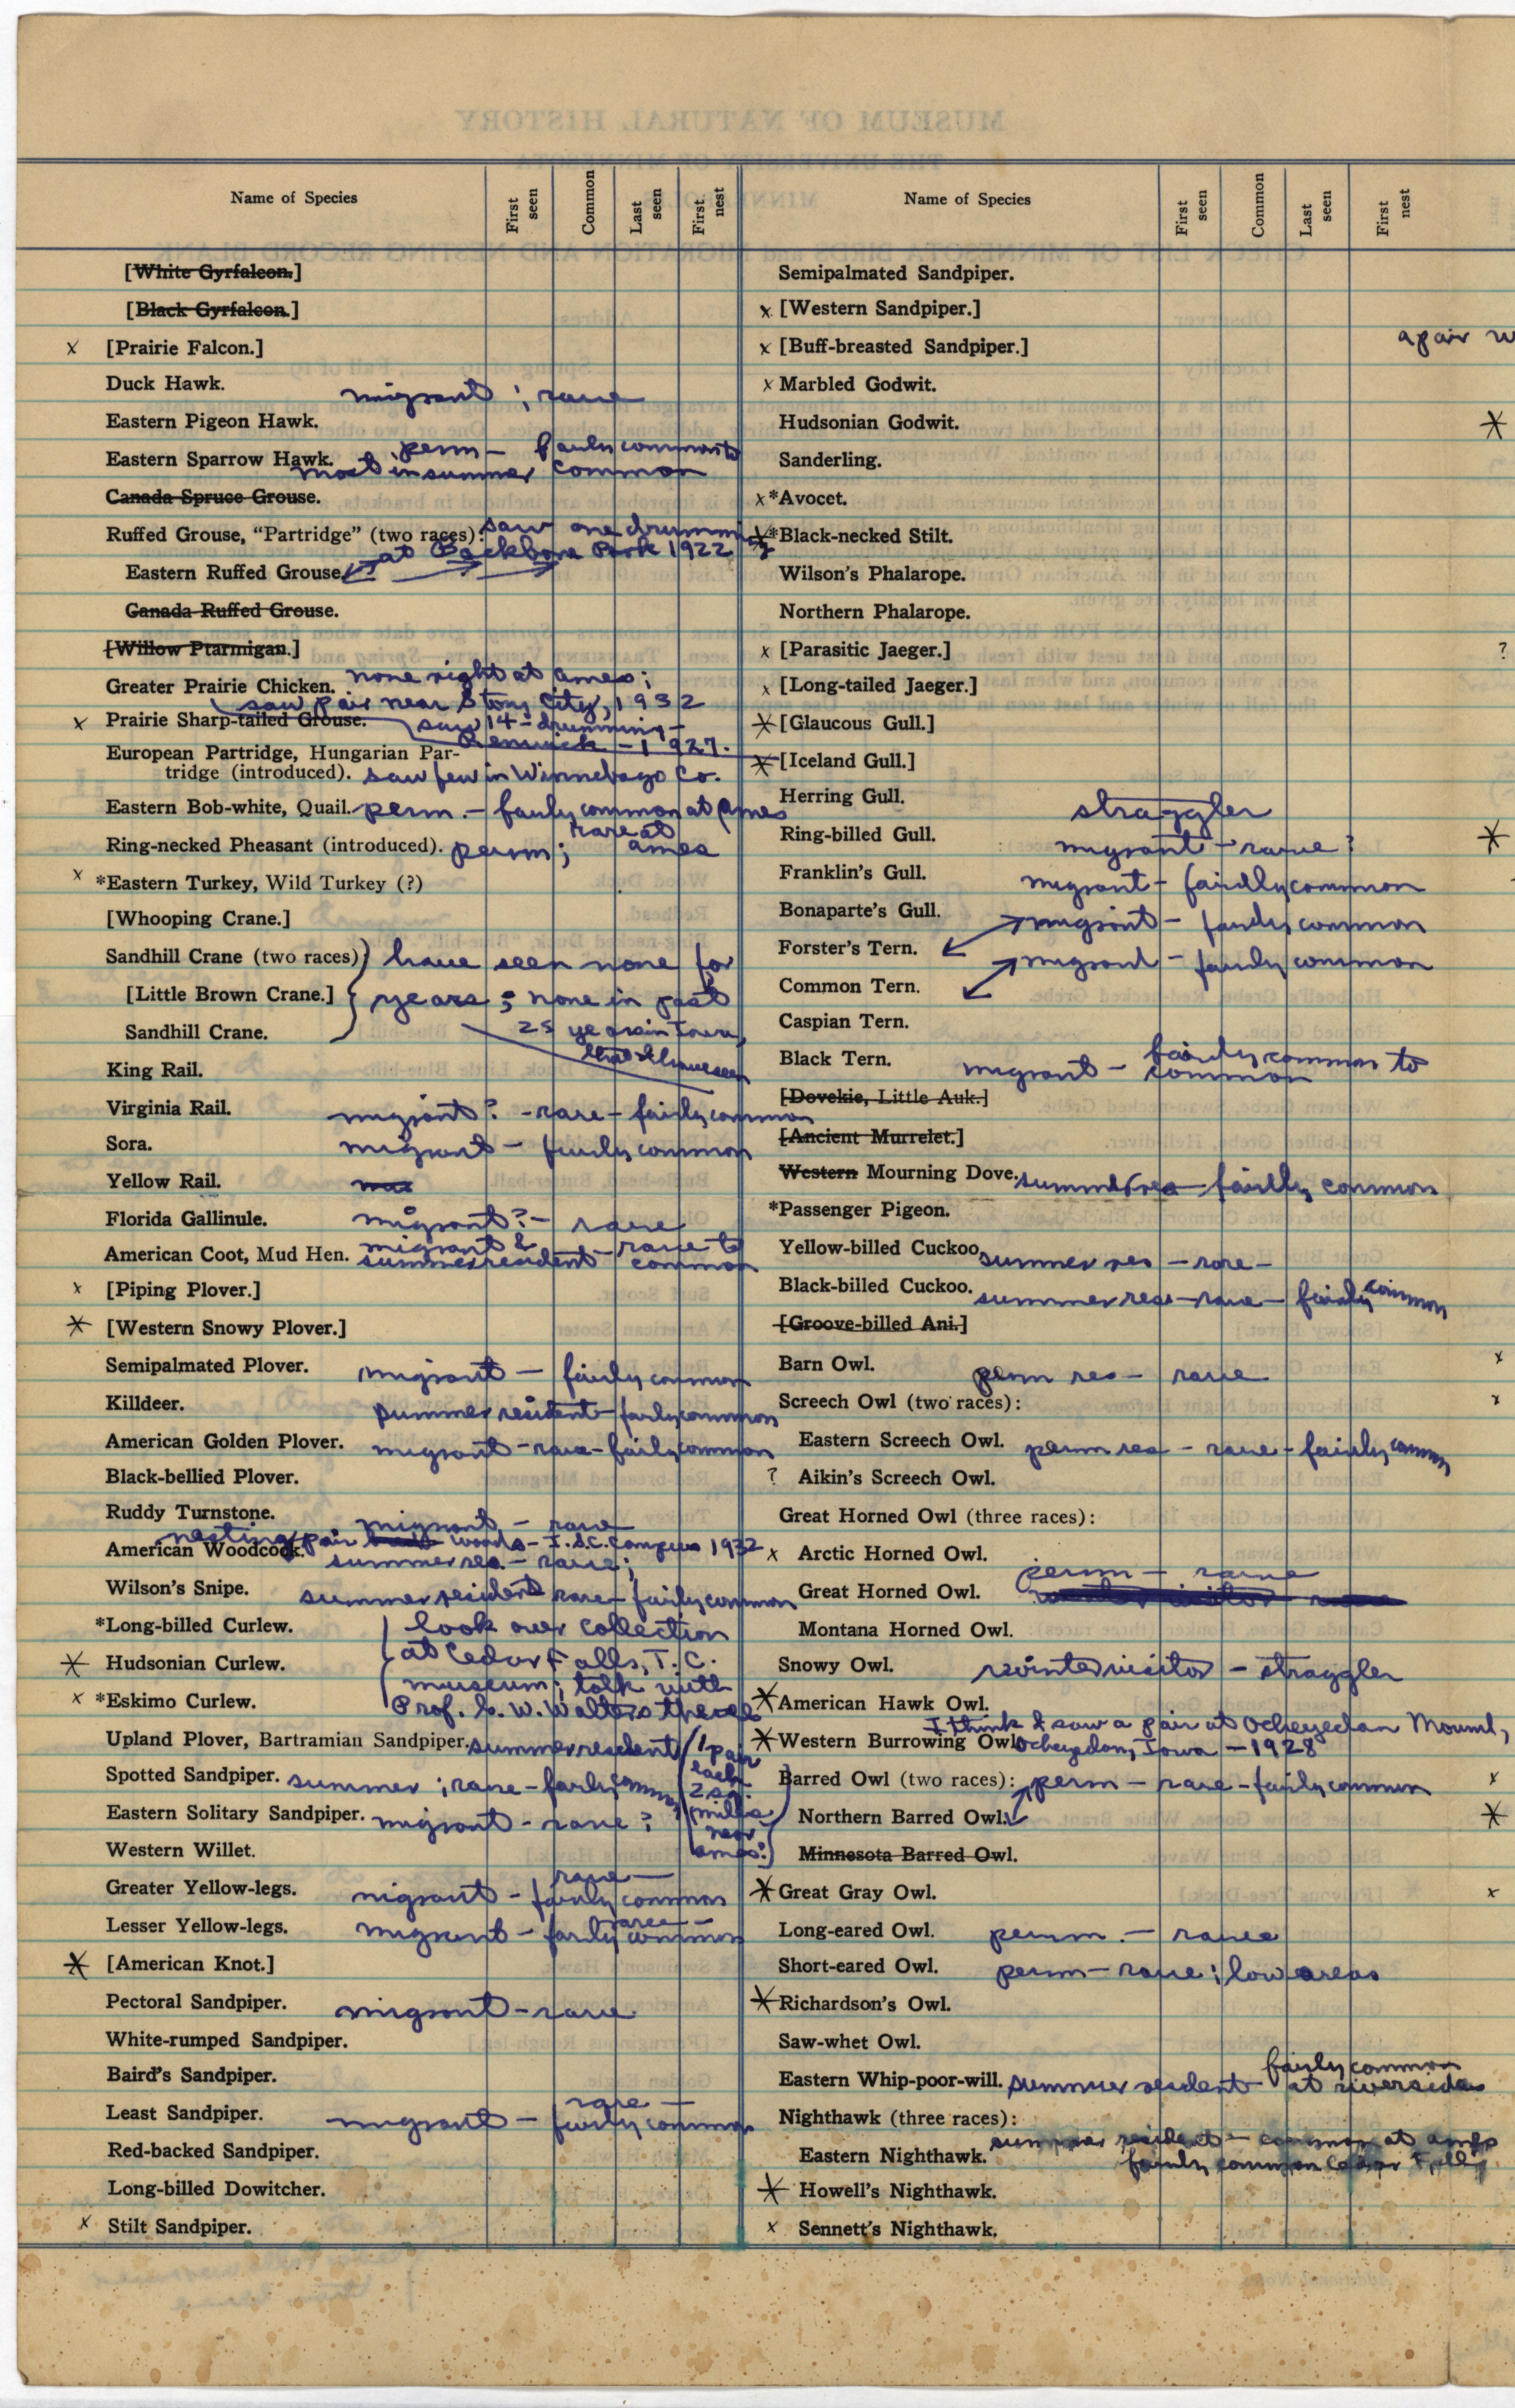 Name of Species First seen Common Last seen First nest
[White Gyrfalcon.]
[Black Gyrfalcon.]
x [Prairie Falcon.]
Duck Hawk. migrant ; rare
Eastern Pigeon Hawk.
Eastern Sparrow Hawk. perm – fairly common to
most in summer common
Canada Spruce Grouse.
Ruffed Grouse, “Partridge” (two races): saw one drumming
at Backbone Park 1922
Eastern Ruffed Grouse.
Canada Ruffed Grouse.
[Willow Ptarmigan.]
Greater Prairie Chicken. none right at Ames;
saw pair near Story City, 1932
x Prairie Sharp-tailed Grouse. saw 14 - drumming -
Renwick - 1927.
European Partridge, Hungarian Par-
tridge (introduced). saw few in Winnebago Co.
Eastern Bob-white, Quail. perm. - fairly common at Ames
Ring-necked Pheasant (introduced). perm; rare at Ames
x *Eastern Turkey, Wild Turkey (?)
[Whooping Crane.]
Sandhill Crane (two races) have seen none for
[Little Brown Crane.] years ; none in past
Sandhill Crane. 25 years in Iowa,
that I have seen
King Rail.
Virginia Rail. migrant? - rare - fairly common
Sora. migrant - fairly common
Yellow Rail.
Florida Gallinule. migrant? - rare
American Coot, Mud Hen. migrant & summer resident - rare to common
x [Piping Plover.]
* [Western Snowy Plover.]
Semipalmated Plover. migrant - fairly common
Killdeer. summer resident - fairly common
American Golden Plover. migrant - rare - fairly common
Black-bellied Plover.
Ruddy Turnstone. migrant - rare
nesting pair woods - I.S.C. Campus 1932
American Woodcock. summer res. - rare;
Wilson's Snipe. summer resident rare - fairly common
*Long-billed Curlew. look over collection
at Cedar Falls, T.C.
* Hudsonian Curlew. museum; talk with
x *Eskimo Curlew. Prof. G. W. Walters there
Upland Plover, Bartramian Sandpiper. summer resident (1 pair each 2 sq. miles near Ames.)
Spotted Sandpiper. summer ; rare - fairly common
Eastern Solitary Sandpiper. migrant - rare ?
Western Willet.
Greater Yellow-legs. migrant - rare - fairly common
Lesser Yellow-legs. migrant - rare - fairly common
* [American Knot.]
Pectoral Sandpiper. migrant - rare
White-rumped Sandpiper.
Baird's Sandpiper.
Least Sandpiper. migrant - rare - fairly common
Red-backed Sandpiper.
Long-billed Dowitcher.
x Stilt Sandpiper.
Name of Species First seen Common Last seen First nest
Semipalmated Sandpiper.
x [Western Sandpiper.]
x [Buff-breasted Sandpiper.]
x Marbled Godwit.
Hudsonian Godwit.
Sanderling.
x *Avocet.
* *Black-necked Stilt.
Wilson's Phalarope.
Northern Phalarope.
x [Parasitic Jaeger.]
x [Long-tailed Jaeger.]
* [Glaucous Gull.]
* [Iceland Gull.]
Herring Gull. straggler
Ring-billed Gull. migrant - rare ?
Franklin's Gull. migrant - fairly common
Bonaparte's Gull. migrant - fairly common
Forster's Tern.
migrant - fairly common
Common Tern.
Caspian Tern.
Black Tern. migrant - fairly common to common
[Dovekie, Little Auk.]
[Ancient Murrelet.]
Western Mourning Dove. summer res - fairly common
*Passenger Pigeon.
Yellow-billed Cuckoo. summer res - rare -
Black-billed Cuckoo. summer res - rare - fairly common
[Groove-billed Ani.]
Barn Owl. perm res - rare
Screech Owl (two races):
Eastern Screech Owl. perm res - rare - fairly common
? Aikin's Screech Owl.
Great Horned Owl (three races):
x Arctic Horned Owl.
Great Horned Owl. perm - rare
Montana Horned Owl.
Snowy Owl. winter visitor - straggler
* American Hawk Owl.
I think I saw a pair at Ocheyedan Mound,
* Western Burrowing Owl. Ocheyedan, Iowa - 1928
Barred Owl (two races): perm - rare - fairly common
Northern Barred Owl.
Minnesota Barred Owl.
* Great Gray Owl.
Long-eared Owl. perm. - rare
Short-eared Owl. perm - rare ; low areas
* Richardson's Owl.
Saw-whet Owl.
Eastern Whip-poor-will. summer resident - fairly common at riversides
Nighthawk (three races):
Eastern Nighthawk. summer resident - common at Ames
fairly common Cedar Falls
* Howell's Nighthawk.
x Sennett's Nighthawk.
a pair
*
?
*
x
x
x
*
x